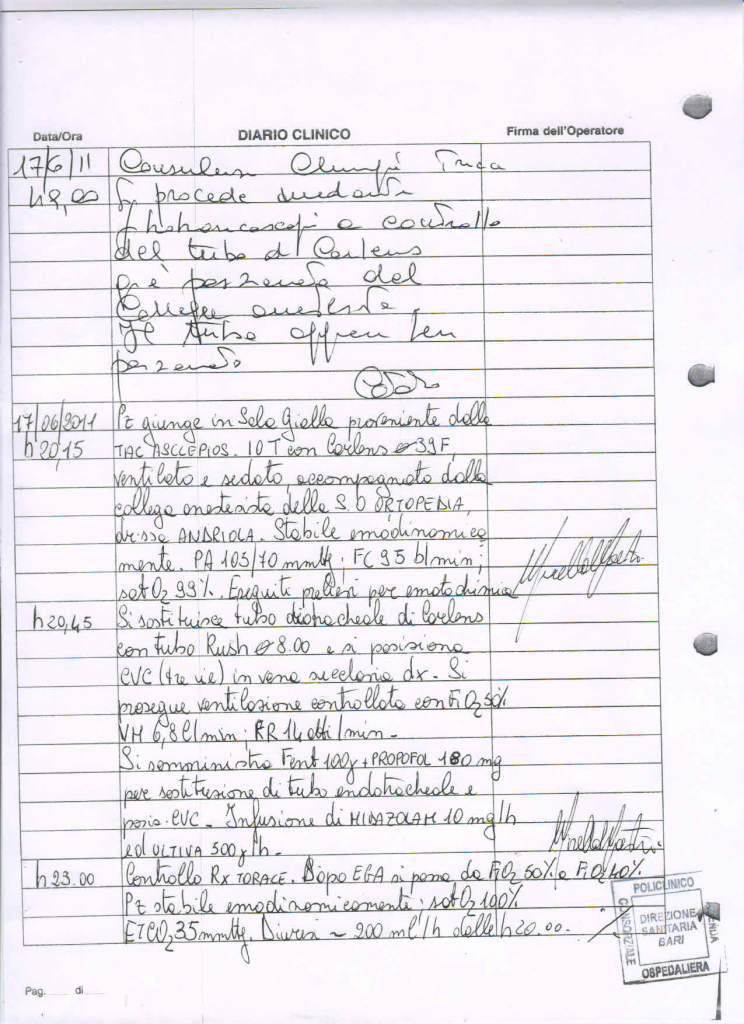 Data/Ora DIARIO CLINICO Firma dell'Operatore
17/6/11 Consulenza Chirurgia
h 9,00 Si procede mediante
fibrobroncoscopia a controllo
del tubo di Carlens
già posizionato dal
Collega anestesista.
Il tubo appare ben
posizionato
17/06/2011 Pz giunge in Sala Gialla proveniente dalla
h 20,15 TAC ASCLEPIOS. IOT con Carlens ø 39 F,
ventilato e sedato, accompagnato dalla
collega anestesista della S.O ORTOPEDIA,
dr.ssa ANDRIOLA. Stabile emodinamica
mente. PA 105/70 mmHg; FC 95 b/min;
sat O2 99%. Eseguiti prelievi per ematochimica
h 20,45 Si sostituisce tubo di Carlens
con tubo Rush ø 8.00 e si posiziona
CVC (tre vie) in vena succlavia dx. Si
prosegue ventilazione controllata con FiO2 50%
VM 6,8 l/min; RR 14 atti/min -
Si somministra Fent 100γ + PROPOFOL 180 mg
per sostituzione di tubo endotracheale e
posiz. CVC - Infusione di MIDAZOLAM 10 mg/h
ed ULTIVA 500 γ/h -
h 23.00 Controllo Rx TORACE. Dopo EGA si passa da FiO2 50% a FiO2 40%
Pz stabile emodinamicamente; sat O2 100%
ETCO2 35 mmHg. Diuresi ~ 200 ml/h dalle h 20.00.
POLICLINICO
CONSORZIALE
DIREZIONE
SANITARIA
BARI
OSPEDALIERA
Pag. di